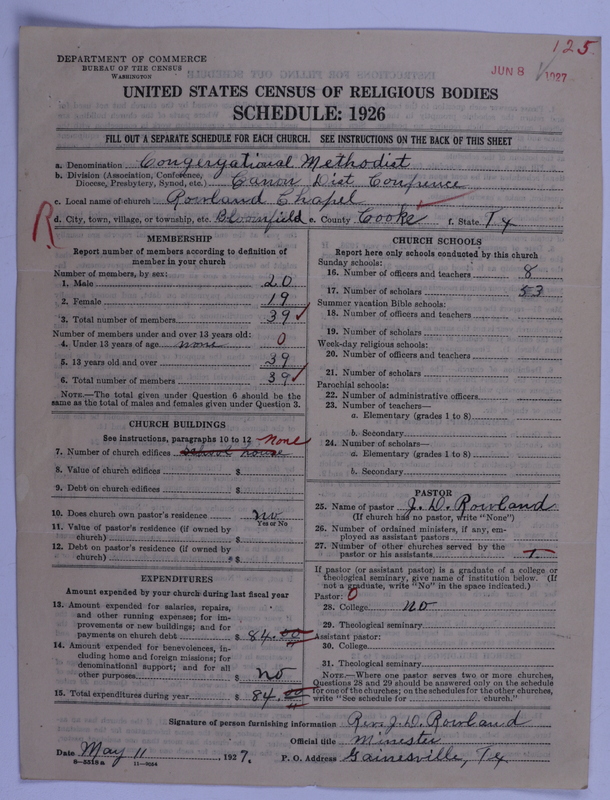 125
DEPARTMENT OF COMMERCE
BUREAU OF THE CENSUS
WASHINGTON
JUN 8 1927
UNITED STATES CENSUS OF RELIGIOUS BODIES
SCHEDULE: 1926
FILL OUT A SEPARATE SCHEDULE FOR EACH CHURCH. SEE INSTRUCTIONS ON THE BACK OF THIS SHEET
a. Denomination Congergational Methodist
b. Division (Association, Conference, Diocese, Presbytery, Synod, etc.) Canon Dist Confrence
c. Local name of church Rowland Chapel
R
d. City, town, village, or township, etc. Bloomfield e. County Cooke f. State Tx
MEMBERSHIP
Report number of members according to definition of
member in your church
Number of members, by sex:
1. Male 20
2. Female 19
3. Total number of members 39
Number of members under and over 13 years old:
4. Under 13 years of age none 0
5. 13 years old and over 39
6. Total number of members 39
NOTE.—The total given under Question 6 should be
the same as the total of males and females given under Question 3.
CHURCH BUILDINGS
See instructions, paragraphs 10 to 12 none
7. Number of church edifices school house
8. Value of church edifices $
9. Debt on church edifices $
10. Does church own pastor's residence no
Yes or No
11. Value of pastor's residence (if owned by
church) $
12. Debt on pastor's residence (if owned by
church) $
EXPENDITURES
Amount expended by your church during last fiscal year
13. Amount expended for salaries, repairs,
and other running expenses; for im-
provements or new buildings; and for
payments on church debt $ 84.00
14. Amount expended for benevolences, in-
cluding home and foreign missions; for
denominational support; and for all
other purposes $ no
15. Total expenditures during year $ 84.00
CHURCH SCHOOLS
Report here only schools conducted by this church
Sunday schools:
16. Number of officers and teachers 8
17. Number of scholars 53
Summer vacation Bible schools:
18. Number of officers and teachers
19. Number of scholars
Week-day religious schools:
20. Number of officers and teachers
21. Number of scholars
Parochial schools:
22. Number of administrative officers
23. Number of teachers—
a. Elementary (grades 1 to 8)
b. Secondary
24. Number of scholars—
a. Elementary (grades 1 to 8)
b. Secondary
PASTOR
25. Name of pastor J. D. Rowland
(If church has no pastor, write "None")
26. Number of ordained ministers, if any, em-
ployed as assistant pastors
27. Number of other churches served by the
pastor or his assistants
If pastor (or assistant pastor) is a graduate of a college or
theological seminary, give name of institution below. (If
not a graduate, write "No" in the space indicated.)
Pastor: 0
28. College no
29. Theological seminary
Assistant pastor:
30. College
31. Theological seminary
NOTE.—Where one pastor serves two or more churches,
Questions 28 and 29 should be answered only on the schedule
for one of the churches; on the schedules for the other churches,
write "See schedule for church."
Signature of person furnishing information Rev. J. D. Rowland
Official title Minester
Date May 11, 1927. P. O. Address Gainesville, Tx
8-5318a 11-9084